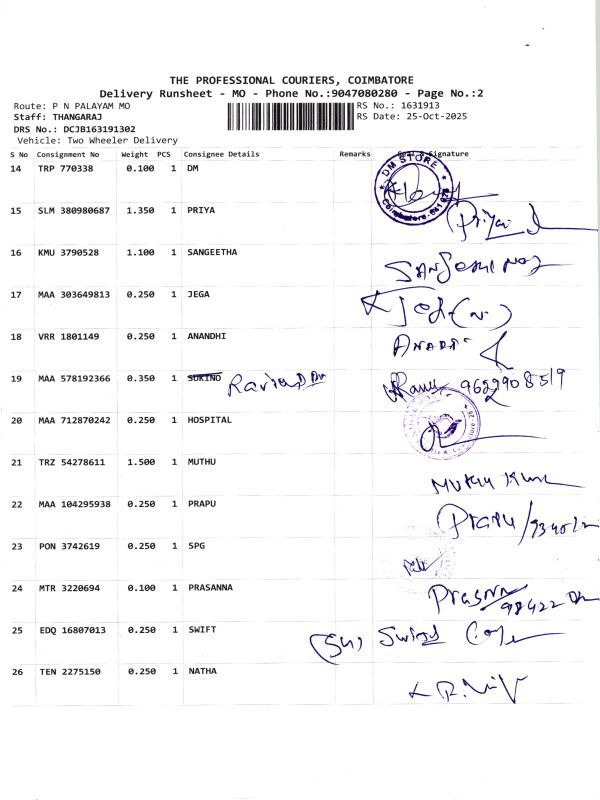 THE PROFESSIONAL COURIERS, COIMBATORE
Delivery Runsheet - MO - Phone No.:9047080280 - Page No.:2
Route: P N PALAYAM MO
RS No.: 1631913
Staff: THANGARAJ
RS Date: 25-Oct-2025
DRS No.: DCJB163191302
Vehicle: Two Wheeler Delivery
S No Consignment No Weight PCS Consignee Details Remarks Signature
14 TRP 770338 0.100 1 DM DM STORE
15 SLM 380980687 1.350 1 PRIYA Priya
16 KMU 3790528 1.100 1 SANGEETHA
17 MAA 303649813 0.250 1 JEGA
18 VRR 1801149 0.250 1 ANANDHI
19 MAA 578192366 0.350 1 SUKINO
20 MAA 712870242 0.250 1 HOSPITAL
21 TRZ 54278611 1.500 1 MUTHU Muthu
22 MAA 104295938 0.250 1 PRAPU Prapu
23 PON 3742619 0.250 1 SPG
24 MTR 3220694 0.100 1 PRASANNA
25 EDQ 16807013 0.250 1 SWIFT
26 TEN 2275150 0.250 1 NATHA